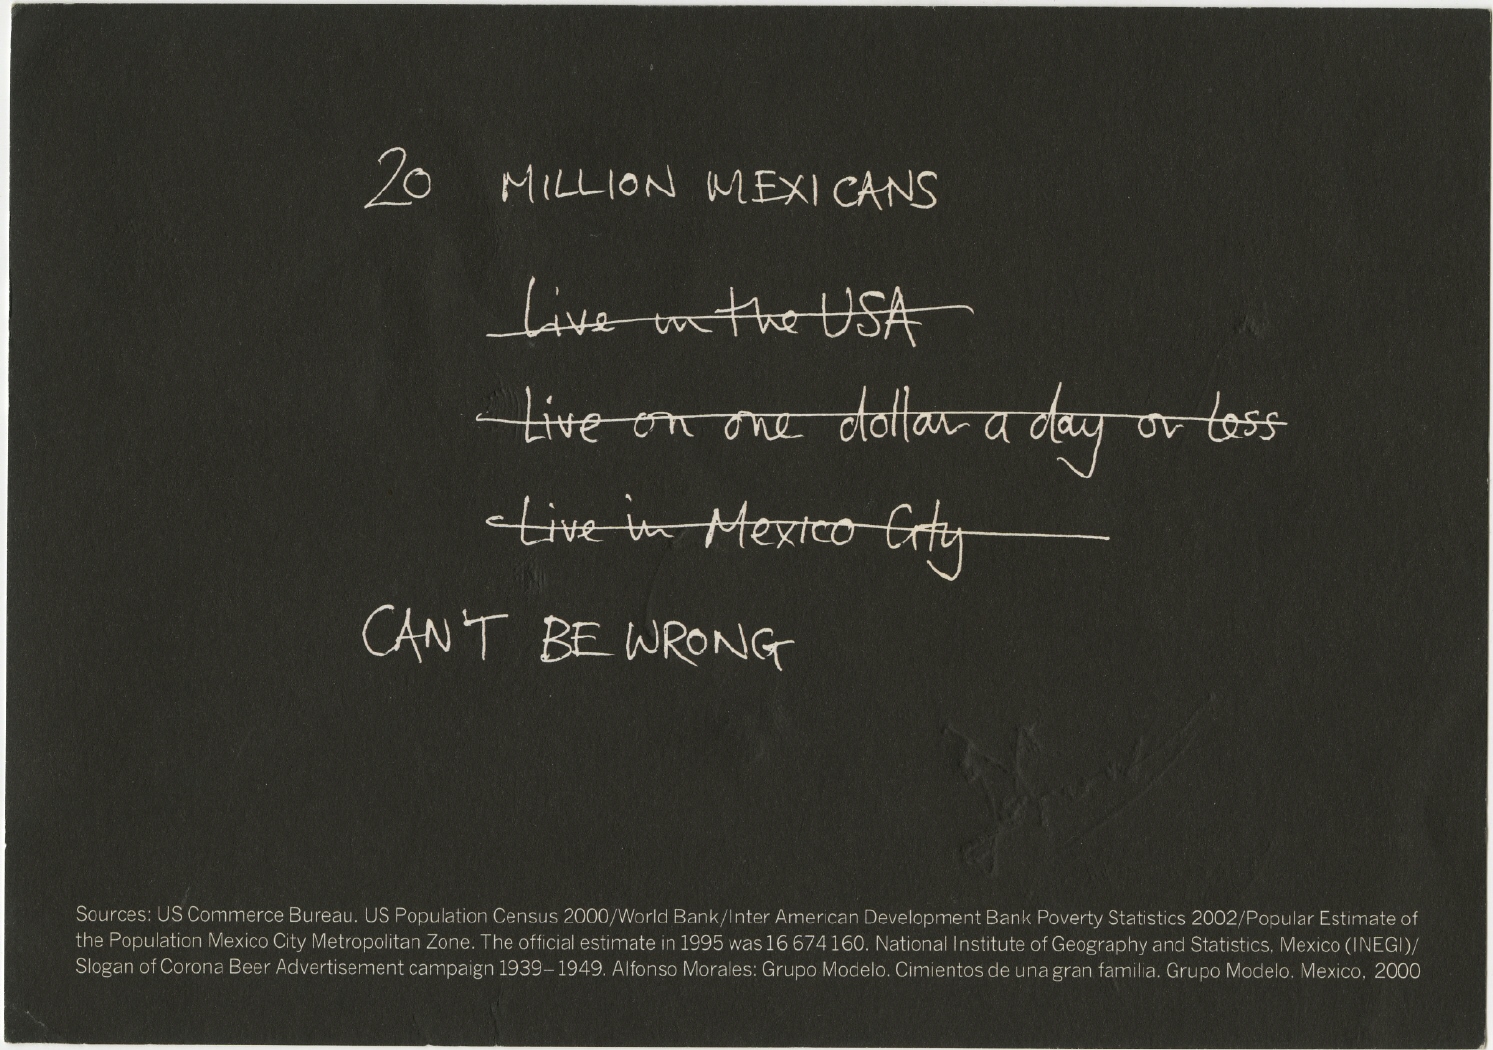 20 MILLION MEXICANS
Live in the USA
Live on one dollar a day or less
Live in Mexico City
CAN'T BE WRONG
Sources: US Commerce Bureau. US Population Census 2000/World Bank/Inter American Development Bank Poverty Statistics 2002/Popular Estimate of
the Population Mexico City Metropolitan Zone. The official estimate in 1995 was 16 674 160. National Institute of Geography and Statistics, Mexico (INEGI)/
Slogan of Corona Beer Advertisement campaign 1939–1949. Alfonso Morales: Grupo Modelo. Cimientos de una gran familia. Grupo Modelo. Mexico, 2000